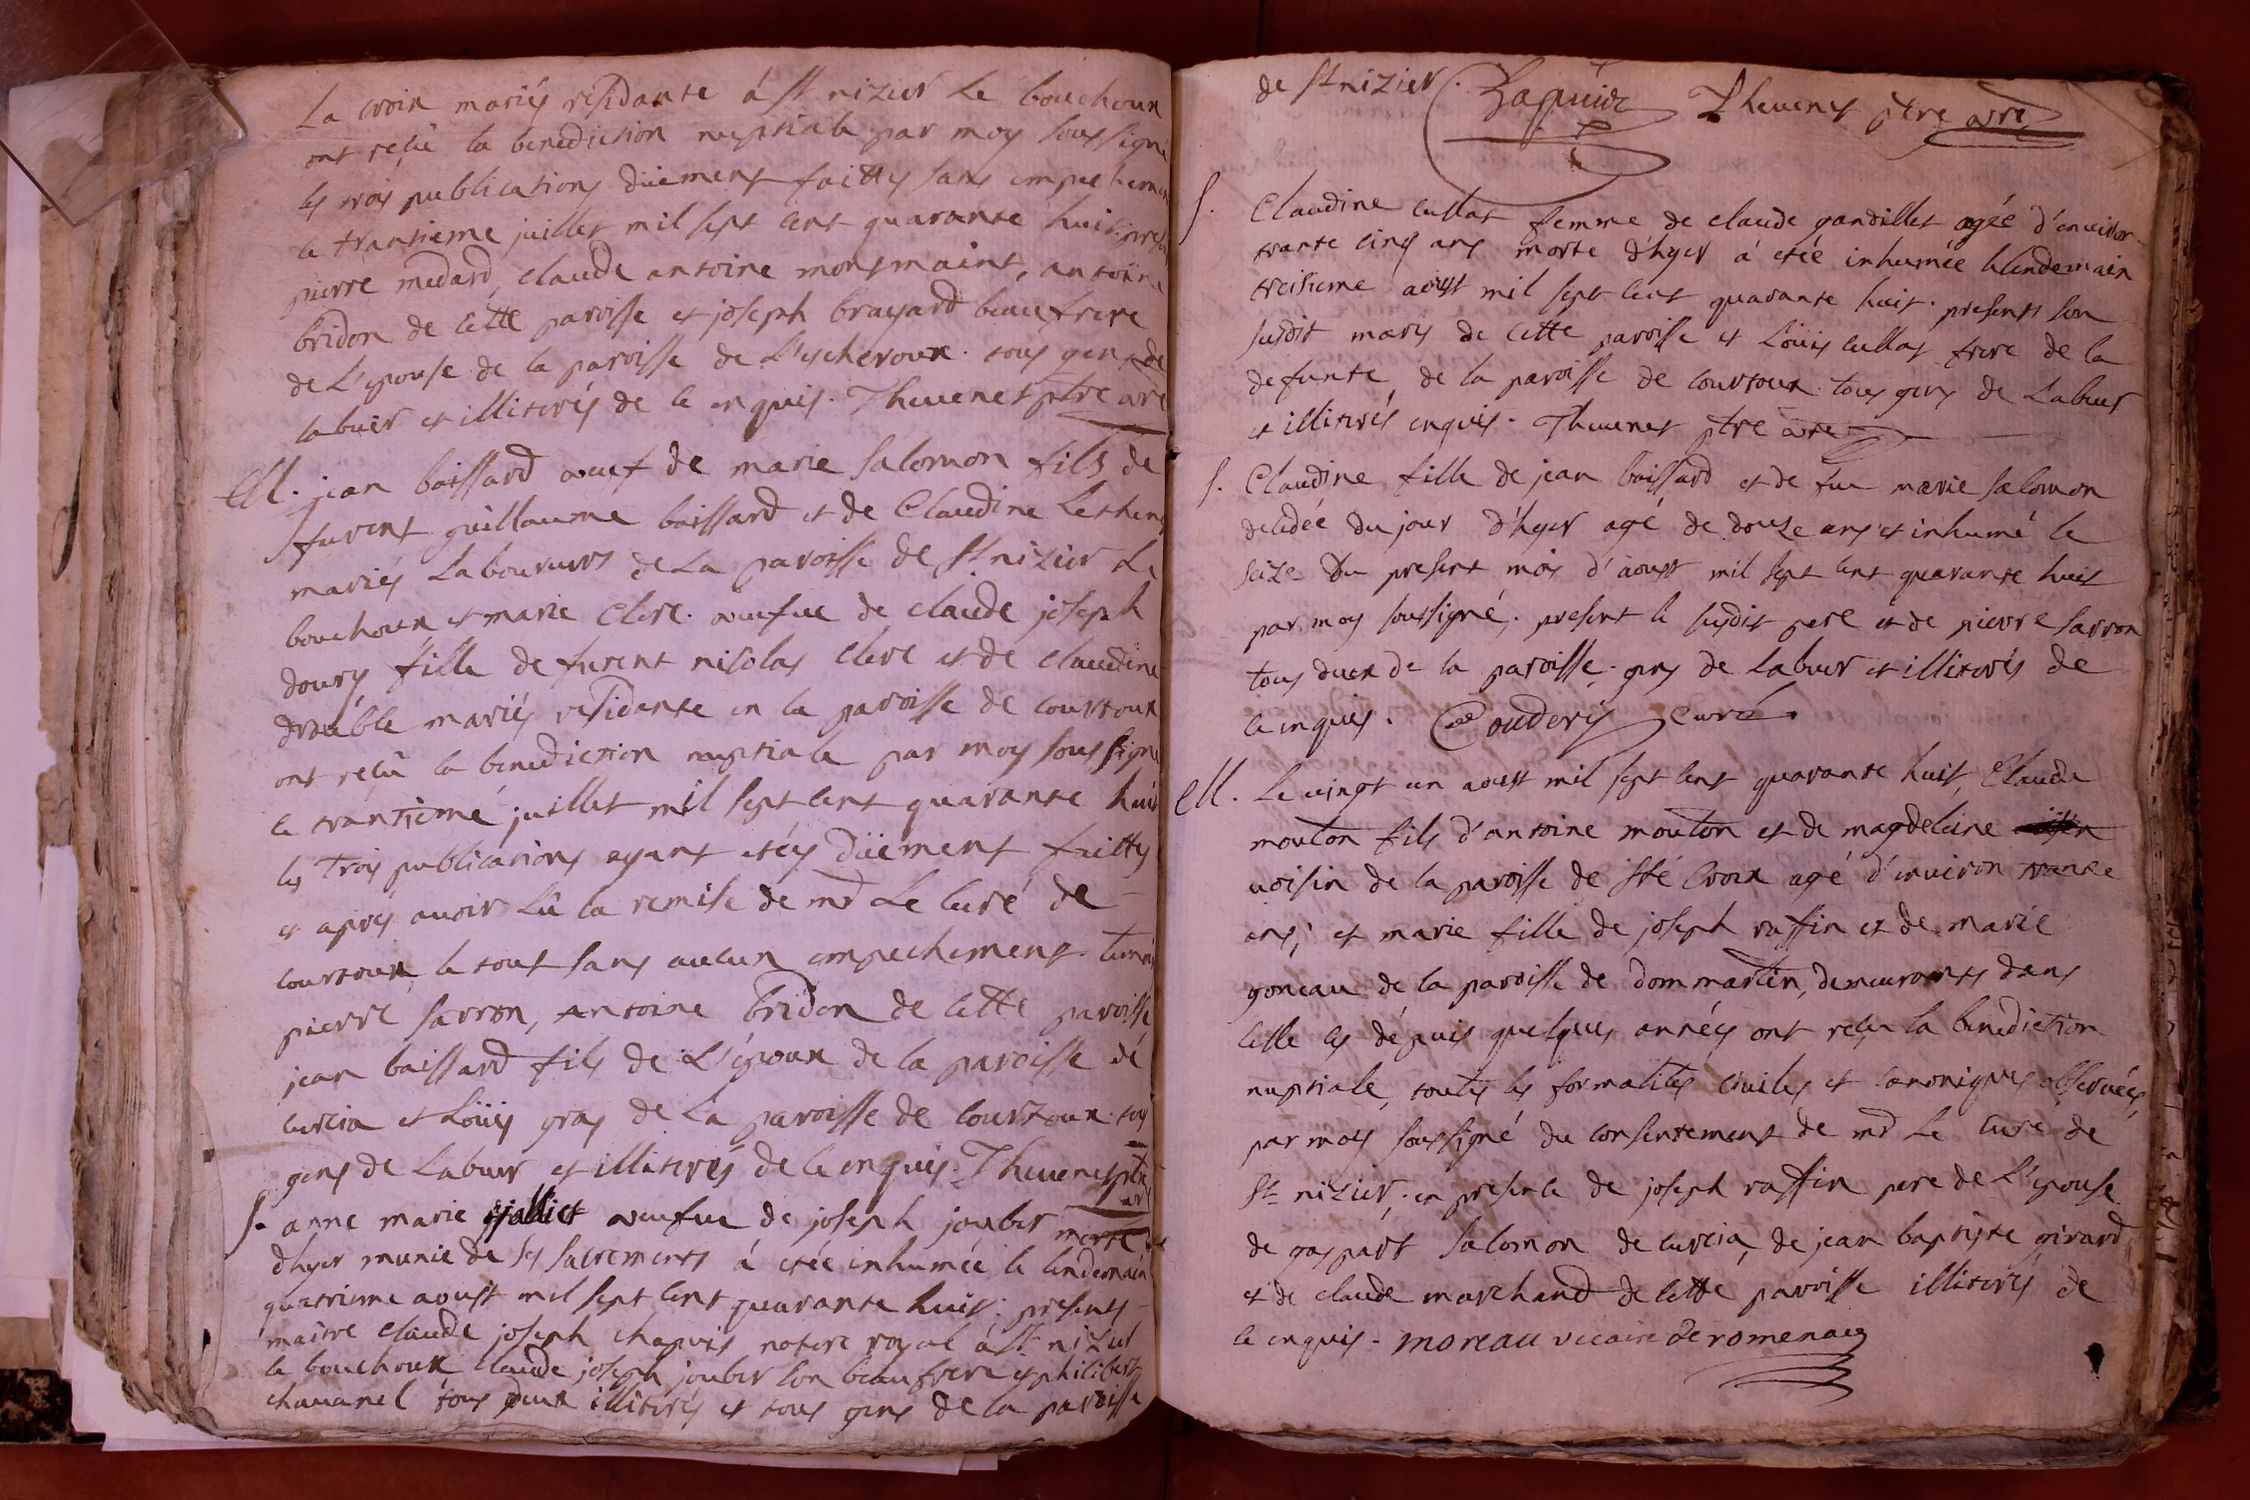 La croix mariés residante á st nizier Le bouchoux
ont reçû la benediction nuptiale par moy soussigné
les trois publications düement faittes sans empechement
le trantieme juillet mil sept cent quarante huit
pierre medard, claude antoine montmaint, antoine
bridon de cette paroisse et joseph brayard beaufrere
de L'epouse de la paroisse de L'escheroux. tous gens de
labeur et illiterés de ce enquis. Thevenet ptre
M. jean boissard veuf de marie salomon fils de
furent guillaume boissard et de Claudine
mariés Laboureurs de La paroisse de St nizier Le
bouchoux et marie Clerc. veufue de claude joseph
doury fille de furent nicolas clerc et de claudine
drouble mariés residante en la paroisse de courtoux
ont reçû la benediction nuptiale par moy soussigné
le trantieme juillet mil sept cent quarante huit
les trois publications ayant etés düement faittes
et aprés avoir Lû la remise de mr Le curé de
courtoux le tout sans aucun empechement.
pierre sarron, antoine bridon de cette paroisse
jean boissard fils de L'epoux de la paroisse de
curcia et Loüis gras de La paroisse de courtoux tous
gens de Labeur et illiterés de ce enquis. Thevenet ptre
S. anne marie veufue de joseph jouber morte
d'hyer munie de Sts sacrements á etée inhumée le lendemain
quatrieme aoust mil sept cent quarante huit. presents
maitre claude joseph chapuis notere royal á St nizier
le bouchoux, claude joseph jouber son beaufrere et philibert
chavanel tous deux illiterés et tous gens de la paroisse
de St nizier. Thevenet ptre
S. Claudine cullat femme de claude gandillet agée d'environ
trante cinq ans morte d'hyer á etée inhumée le lendemain
treisieme aoust mil sept cent quarante huit. presents son
susdit mary de cette paroisse et Loüis cullat frere de la
defunte de la paroisse de courtoux. tous gens de Labeur
et illiterés enquis. Thevenet ptre
S. Claudine fille de jean boissard et de fue marie salomon
decedée du jour d'hyer agé de douze ans et inhumé le
seize du present mois d'aoust mil sept cent quarante huit
par moy soussigné. present le susdit pere et de pierre sarron
tous deux de la paroisse. gens de Labeur et illiterés de
ce enquis. Couderis curé
M. Le vingt un aoust mil sept cent quarante huit, Claude
mouton fils d'antoine mouton et de magdeleine
voisin de la paroisse de Ste Croix agé d'environ trante
ans; et marie fille de joseph raffin et de marie
goneau de la paroisse de dommartin, demeurants dans
celle cy dépuis quelques années ont reçu la benediction
nuptiale, toutes les formalités civiles et canoniques observées,
par moy soussigné du consentement de mr Le curé de
St nizier, en presence de joseph raffin pere de L'epouse
de gaspart salomon de curcia, de jean baptiste girard
et de claude marchand de cette paroisse illiterés de
ce enquis. moreau vicaire de romenay